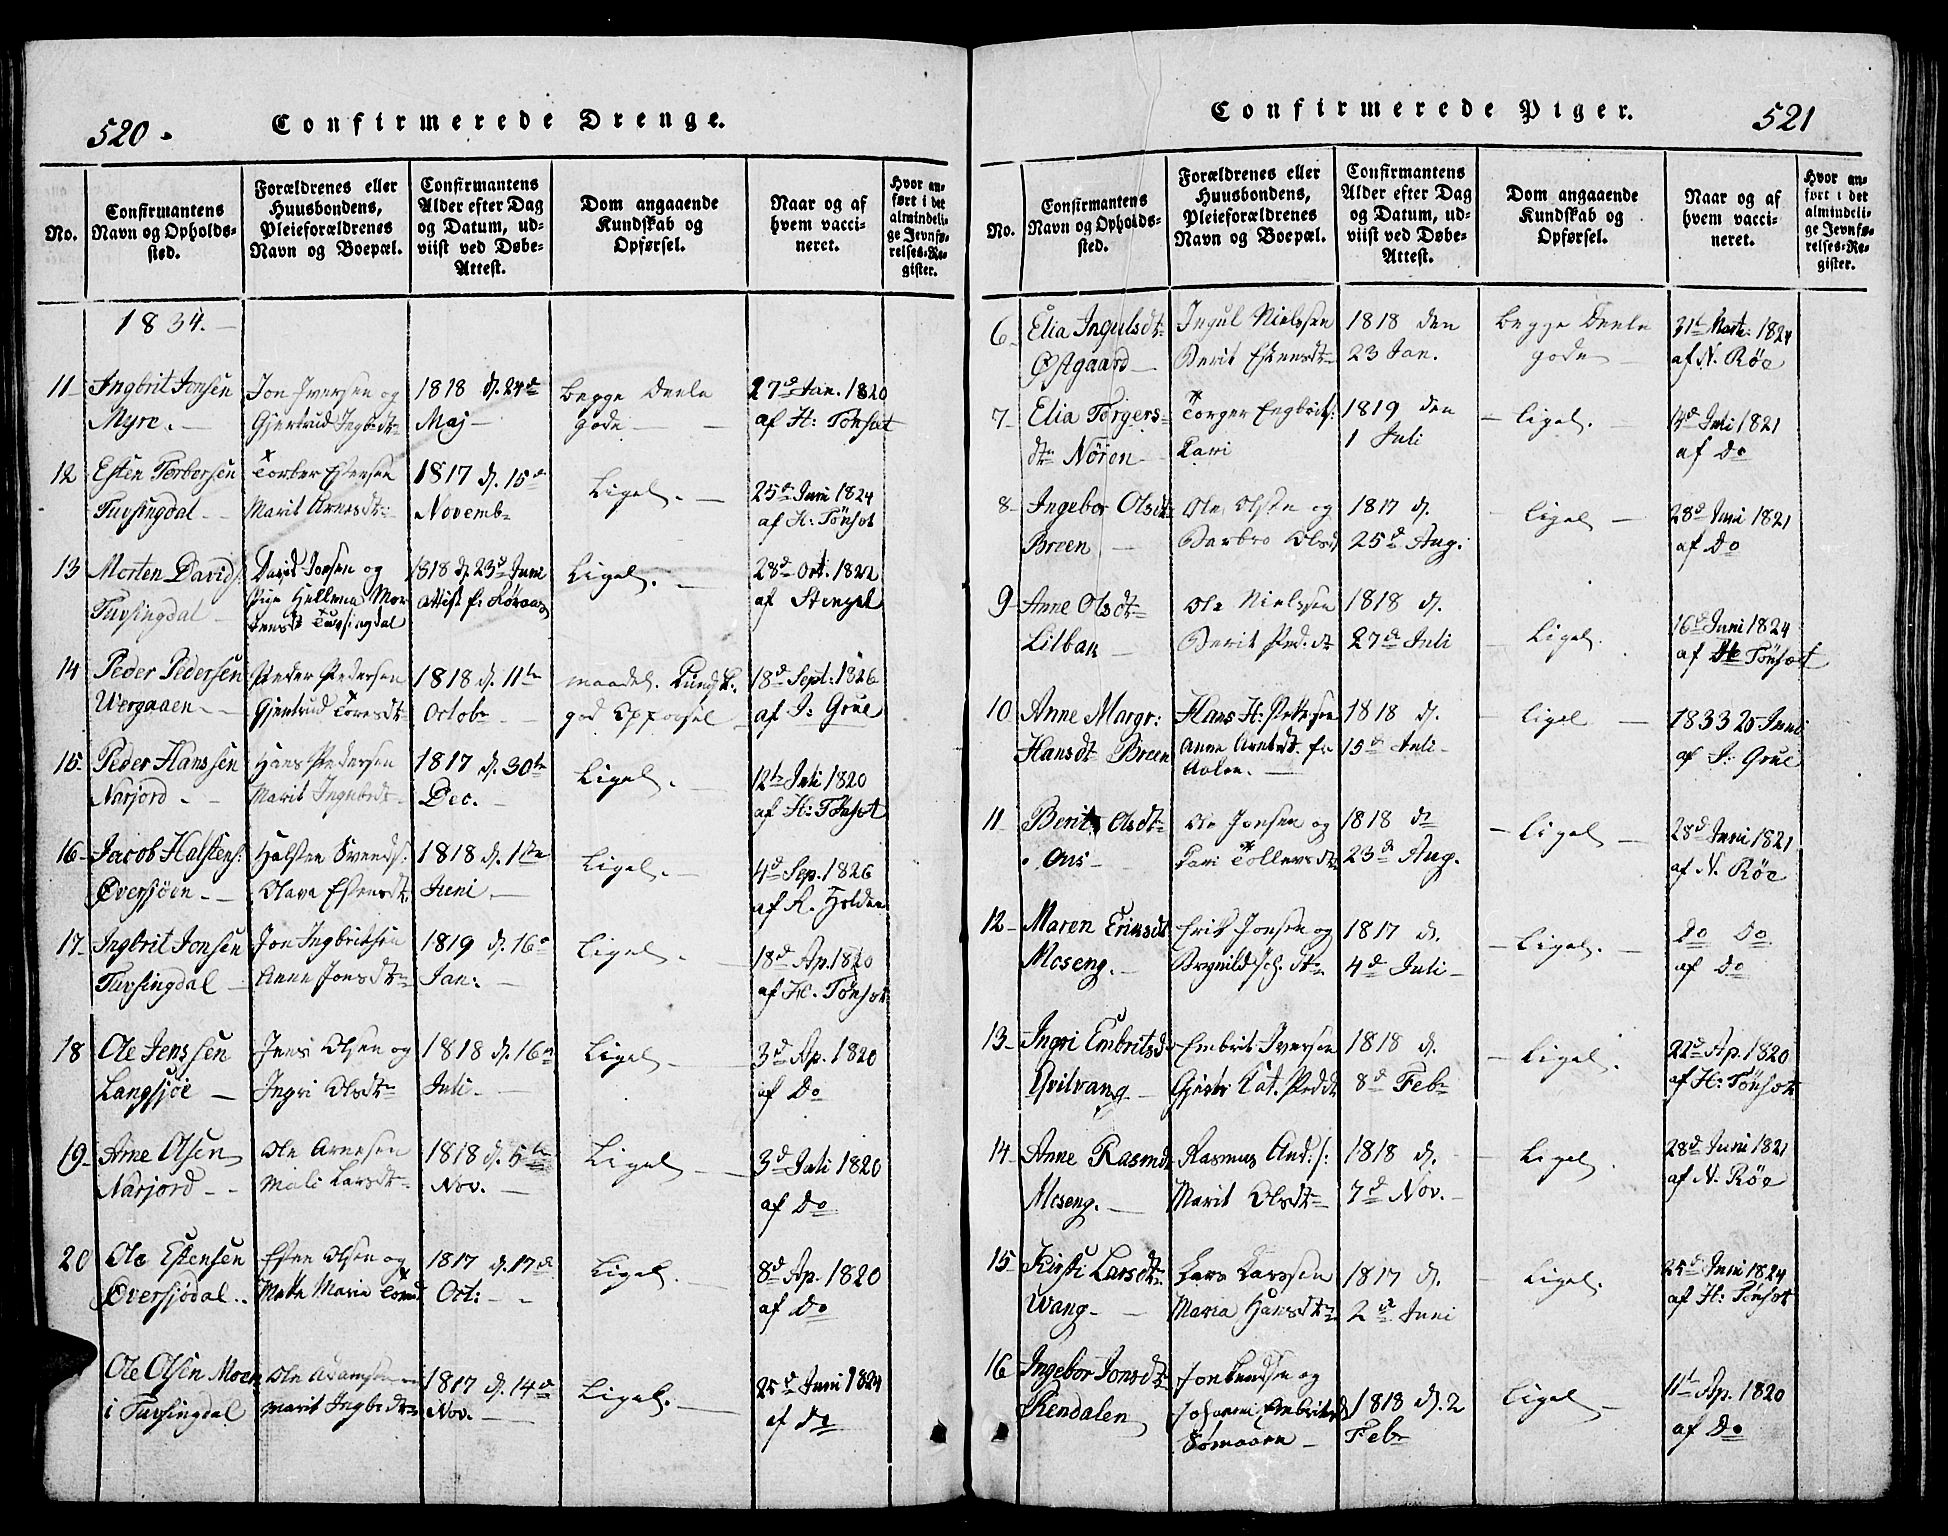 520.
Confirmerede Drenge.
No.
Confirmantens
Navn og Opholds-
sted.
Forældrenes eller
Huusbondens,
Pleieforældrenes
Navn og Boepæl.
Confirmantens
Alder efter Dag
og Datum, ud-
viist ved Døbe-
Attest.
Dom angaaende
Kundskab og
Opførsel.
Naar og af
hvem vacci-
neret.
Hvor an-
ført i det
almindeli-
ge Jevnfø-
relses-Re-
gister.
1834.
11 Ingbrit Jonsen
Myre.
Jon Iversen og
Gjertrud Ingbrdtr
1818 d. 24de
Maj
begge Deele
gode
27d Jan. 1820
af H: Tönset
12 Esten Torborsen
Tufsingdal
Torber Estensen
Marit Arnesdtr
1817 d. 15de
Novemb
Ligel.
25d Juni 1824
af H: Tönset
13 Morten Davids:
Tufsingdal
David Joesen og
Hellena Mor
tensdt Tufsingdal
1818 d. 23d Juni
Attest fr Röraas
Ligel.
28d Oct. 1822
af Stengel
14 Peder Pedersen
Wergaaen
Peder Pedersen
Gjertrud Toresdt
1818 d. 11te
Octob
maadel. Kundsk.
god Opførsel
18d Sept: 1826
af J: Grue
15 Peder Hanssen
Narjord
Hans Pedersen
Marit Ingebrdt
1817 d. 30te
Dec.
Ligel.
12te Juli 1820
af H: Tönset
16 Jacob Halstens:
Øversjöen
Halsten Svends:
Olava Estensdt
1818 d. 1te
Juni
Ligel.
4d Sep. 1826
af R. Holden
17 Ingbrit Jonsen
Tufsingdal
Jon Ingbritsen
Anne Jonsdtr
1819 d. 16
Jan:
Ligel.
18d Ap. 1820
af H. Tönset
18 Ole Jenssen
Langsjöe
Jens Olsen og
Ingri Olsdtr
1818 d. 16
Juli
Ligel.
3d Ap. 1820
af Do
19 Arne Olsen
Narjord
Ole Arnesen
Mali Larsdtr
1818 d. 5te
Nov.
Ligel
3d Juli 1820
af Do
20 Ole Estensen
Øversjödal
Esten Olsen og
Mette Maria
1817 d. 17de
Oct:
Ligel.
8d Ap. 1820
af Do
Ole Olsen Moen
i Tufsingdal
Ole Adamsen
Marit Ingbrdtr
1817 d. 14de
Nov.
Ligel.
25d Juni 1824
af Do
Confirmerede Piger.
521
No.
Confirmantens
Navn og Opholds-
sted.
Forældrenes eller
Huusbondens,
Pleieforældrenes
Navn og Boepæl.
Confirmantens
Alder efter Dag
og Datum, ud-
viist ved Døbe-
Attest.
Dom angaaende
Kundskab og
Opførsel.
Naar og af
hvem vacci-
neret.
Hvor an-
ført i det
almindeli-
ge Jevnfø-
relses-Re-
gister.
6 Elia Ingulsdt
Østgaard
Ingul Nielssen
Berit Estensdtr
1818 den
23 Jan.
begge Deele
gode
31te Marts: 1824
af N. Röe
7 Elia Torgers-
dtr Nören
Torger Engbrits:
Kari
1819 den
1 Juli
ligel.
Juli 1821
af Do
8 Ingebor Olsdt
Breen
Ole Olsen og
Barbro Olsdt
1817 d.
25d Aug.
ligel
28d Juni 1821
af Do
9 Anne Olsdt
Lilbak
Ole Nielssen
Berit Ped.dt
1818 d.
27de Juli
Ligel.
16d Juni 1824
af He Tönset
10 Anne Margr:
Hansdt Breen
Hans H: Pedersen
Anne Arntsdt. fr
Aalen.
1818 d.
15d Juli
ligel
1833 25 Juni
af J: Grue
11 Berit Olsdt
Ous
Ole Jonsen og
Kari Tollevsdt
1818 d
23d Aug.
Ligel
28d Juni 1821
af N. Röe
12 Maren Eriksdt
Moseng.
Erik Jonsen og
Brynild dtr
1817 d.
4d Juli
Ligel.
Do Do
af Do
13 Ingri Embritsd
Qvilvang
Embrit Iversen
Gjerti Kat. Peddt
1818 d.
8d Feb
Ligel.
22d Ap. 1820
af H: Tönset
14 Anne Rasmdt
Moseng.
Rasmus And:s:
Marit Olsdtr
1818 d.
7d Nov.
Ligel.
28d Juni 1821
af N. Röe
15 Kirsti Larsdt
Wang
Lars Larssen
Maria Hansdtr
1817 d.
2d Juni
Ligel.
25d Juni 1824
af H: Tönset
16 Ingebor Jonsdt
Rendalen
Jon og
Embrits
1818 d. 2
Feb
Ligel
11te Ap. 1820
af Do